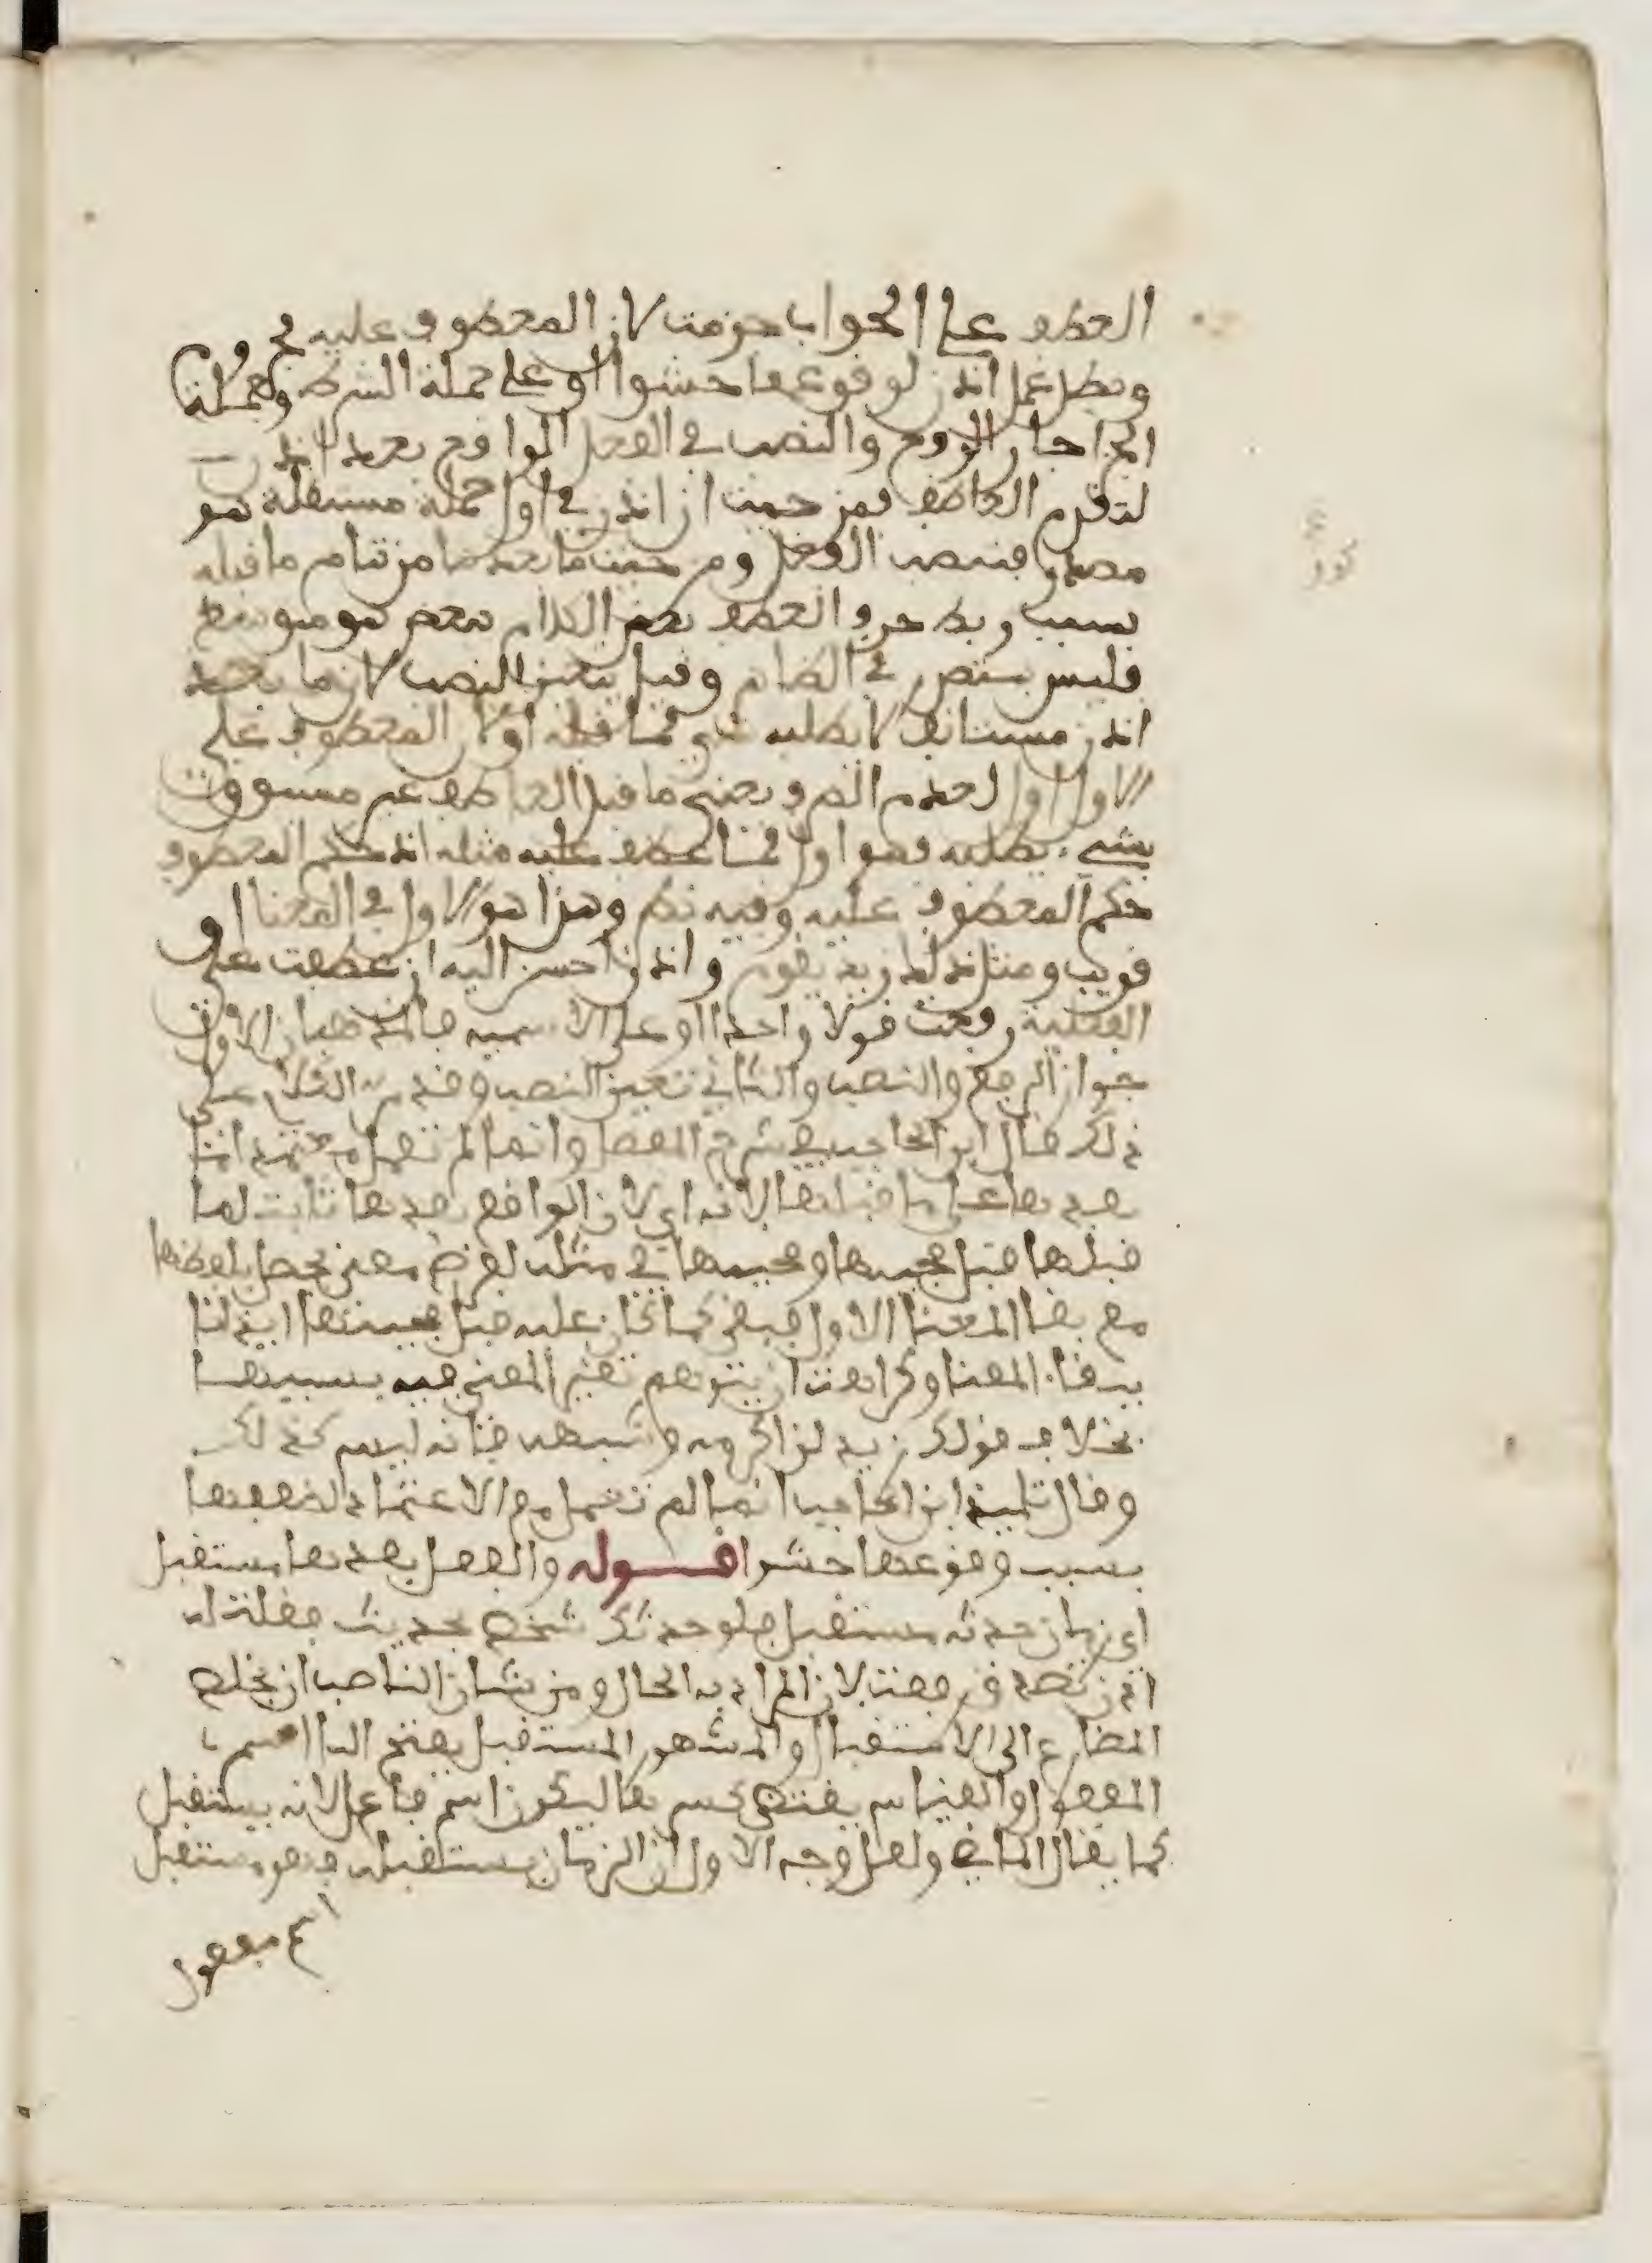 العطف على الجواب جزمت لان المعطوف عليه جزم
وبطل عمل اذن لوقوعها حشوا او على جملة الشرط والجملة
الجزا جاز الرفع والنصب في الفعل الواقع بعد اذن
لتقدم العاطف فمن حيث ان اذن في اول جملة مستقلة هو
مصدر فينصب الفعل ومن حيث ما بعدها من تمام ما قبله
بسبب ربط حرف العطف بعض الكلام ببعض هو متوسط
وقيل يتعين النصب لان ما بعد
اذن مستانف لا يطلبه شي مما قبله اولا لان المعطوف على
الاول اول لعدم يعني ما قبل العاطف غير مسبوق
بشيء يطلبه فهو اول فما عطف عليه مثله اذ حكم المعطوف
حكم المعطوف عليه وفيه نظر وهذا هو الاول في المعنا او
قريب ومثل ذلك زيد يقوم واذن احسن اليه ان عطفت على
الفعلية رفعت قولا واحدا او على الاسمية فالمذهبان الاول
جواز الرفع والنصب والثاني تعين النصب وقد مر الكلام على
ذلك قال ابن الحاجب في شرح المفصل وانما لم تعمل معتمدا ما
بعدها على ما قبلها لانه اي لان الواقع بعدها ثابت لما
قبلها قبل مجيئها ومجيئها في مثله لغرض معنى يحصل بلفظها
مع بقا المعنا الاول فبقي كما كان عليه قبل مجيئها ايذانا
ببقا المعنا وكراهة ان يتوهم تغير المعنى فيه بسببها
بخلاف قولك زيد لن اكرمه وشبهه فانه ليس كذلك
وقال تلميذ ابن الحاجب انما لم تعمل مع الاعتماد لضعفها
بسبب وقوعها حشوا قوله والفعل بعدها مستقبل
اي زمان حدثه مستقبل فلو حدثك شخص بحديث فقلت له
اذن تصدق رفعت لان المراد به الحال ومن شان الناصب ان يخلص
المضارع الى الاستقبال والمشهور المستقبل بفتح البا اسم
المفعول والقياس يقتضي كسرها ليكون اسم فاعل لانه يستقبل
كما يقال الماضي ولعل وجه الاول ان الزمان يستقبله فهو مستقبل
اسم مفعول